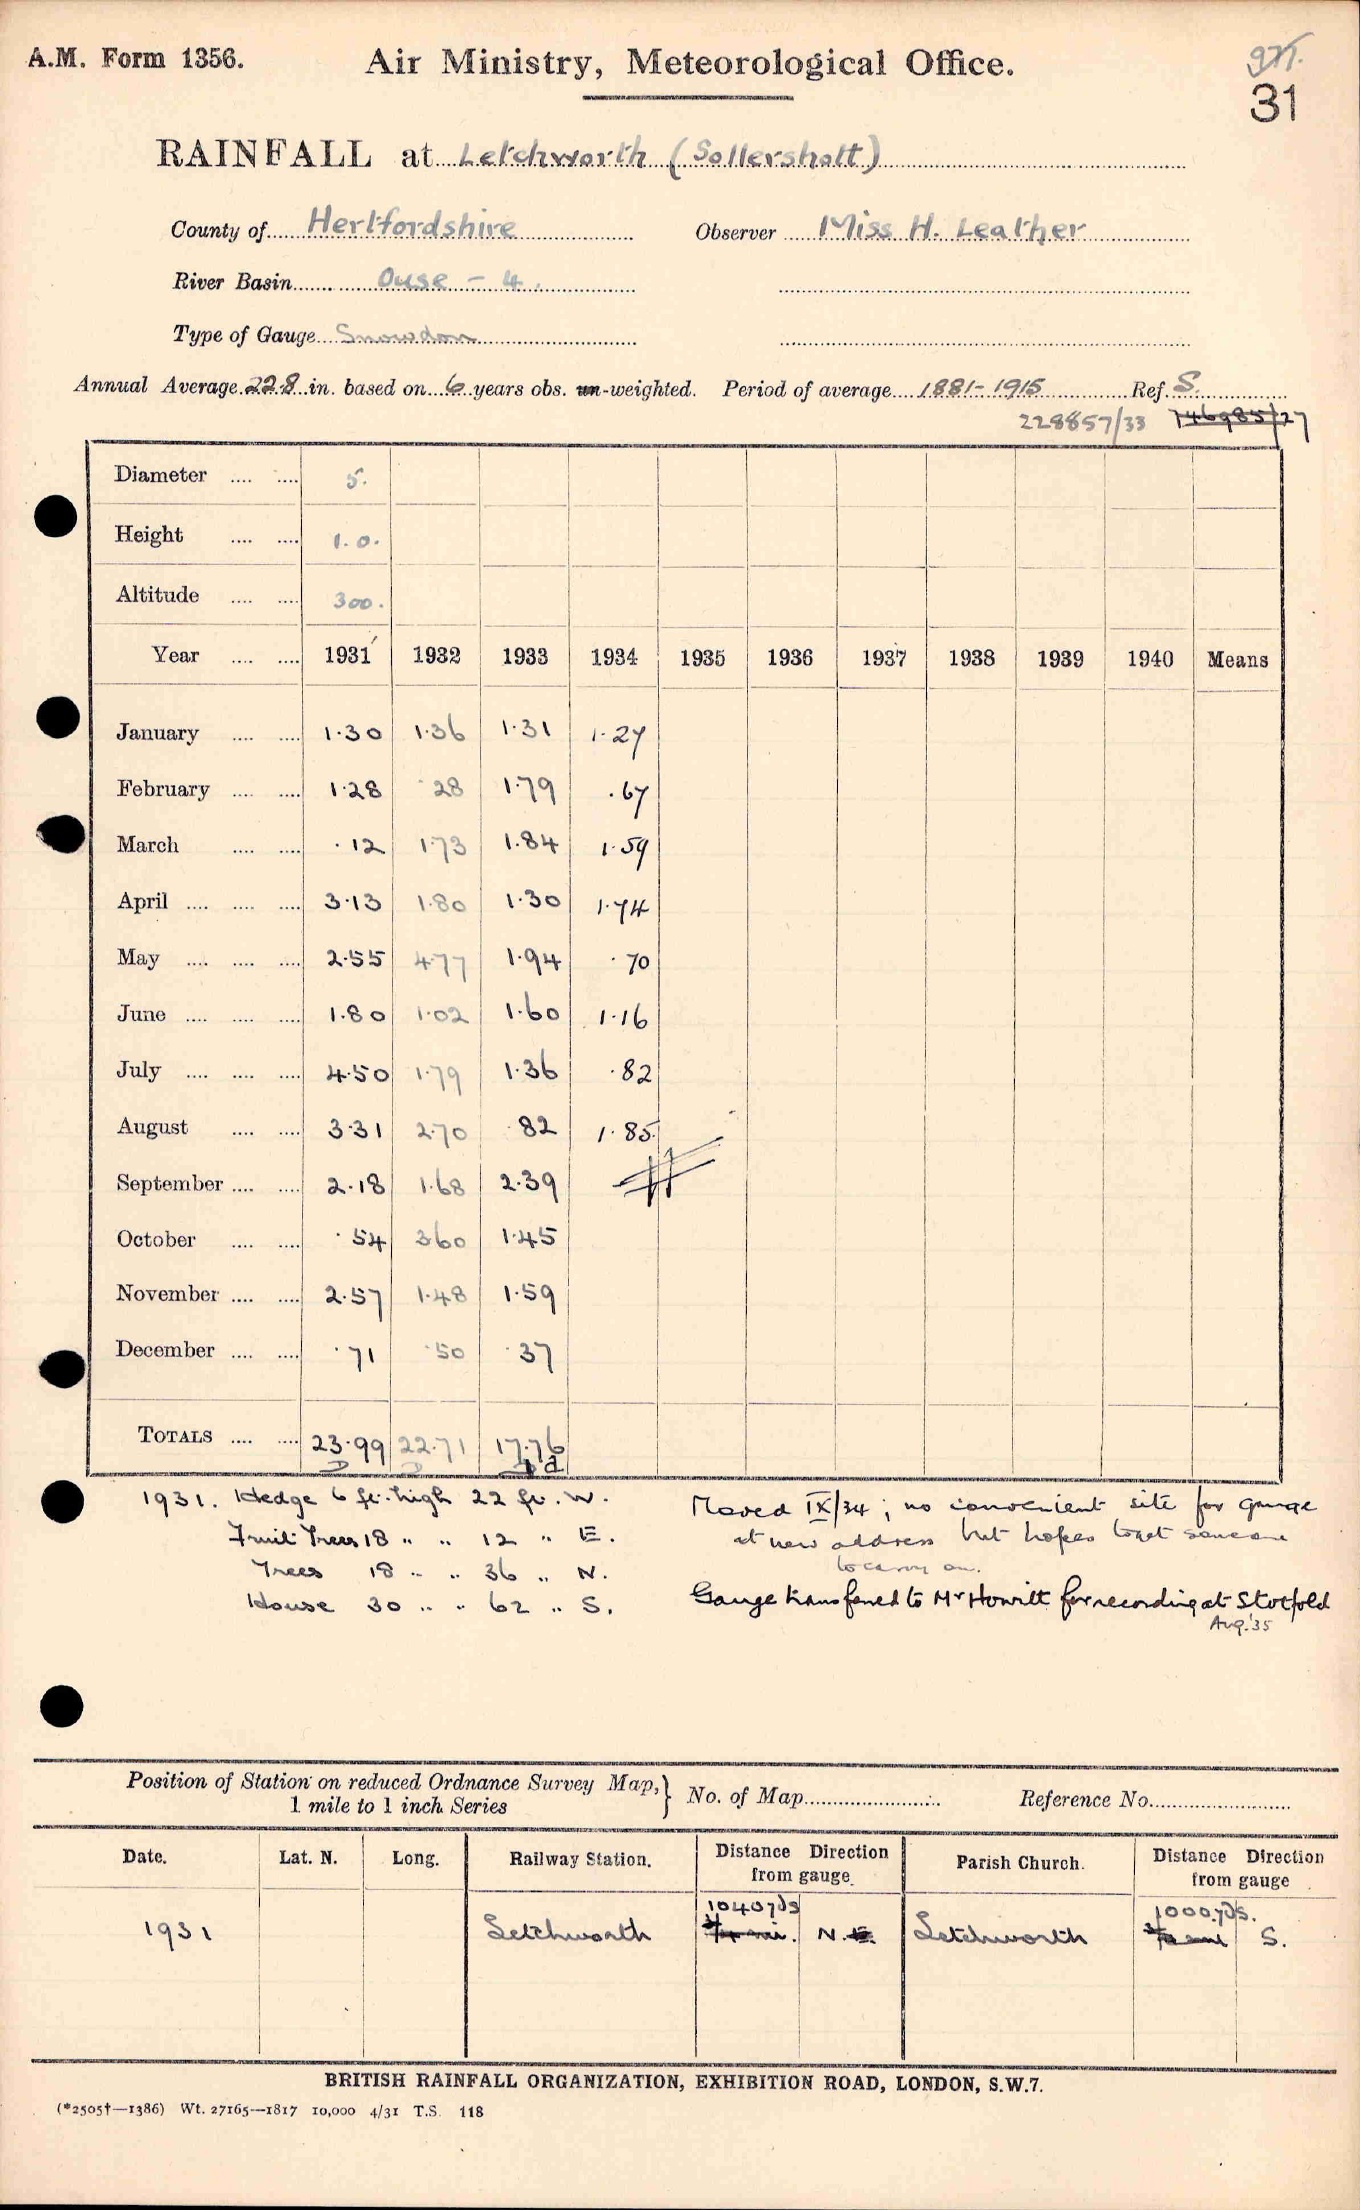 A.M. Form 1356.
Air Ministry, Meteorological Office.
31
RAINFALL at Letchworth (Sollershott)
County of Hertfordshire Observer Miss H. Leather
River Basin Ouse - 4.
Type of Gauge Snowdon
Annual Average 22.8 in. based on 6 years obs. un-weighted. Period of average 1881-1915 Ref. S.
228857/33 746985/27
Diameter .... .... 5.
Height .... .... 1.0.
Altitude .... .... 300.
Year .... .... 1931 1932 1933 1934 1935 1936 1937 1938 1939 1940 Means
January .... .... 1.30 1.36 1.31 1.27
February .... .... 1.28 .28 1.79 .67
March .... .... .12 1.73 1.84 1.59
April .... .... .... 3.13 1.80 1.30 1.74
May .... .... .... 2.55 4.77 1.94 .70
June .... .... .... 1.80 1.02 1.60 1.16
July .... .... .... 4.50 1.79 1.36 .82
August .... .... 3.31 2.70 .82 1.85
September .... .... 2.18 1.68 2.39
October .... .... .54 3.60 1.45
November .... .... 2.57 1.48 1.59
December .... .... .71 .50 .37
TOTALS .... .... 23.99 22.71 17.76
1931. Hedge 6 ft. high 22 ft. W.
Fruit Trees 18 " " 12 " E.
Trees 18 " " 36 " N.
House 30 " " 62 " S.
Moved IX/34; no convenient site for gauge
at new address but hopes to get someone
to carry on.
Gauge transferred to Mr Howitt for recording at Stotfold
Aug. '35
Position of Station on reduced Ordnance Survey Map,} No. of Map Reference No.
1 mile to 1 inch Series
Date. Lat. N. Long. Railway Station. Distance Direction from gauge Parish Church. Distance Direction from gauge
1040 yds 1000 yds.
1931 Letchworth 3/4 mi. N.E. Letchworth S.
BRITISH RAINFALL ORGANIZATION, EXHIBITION ROAD, LONDON, S.W.7.
(*2505†—1386) Wt. 27165—1817 10,000 4/31 T.S. 118